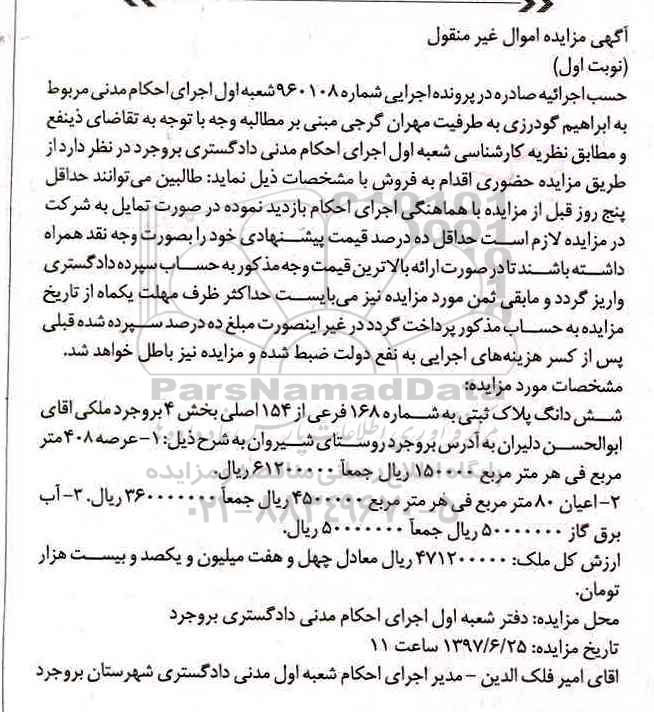 آگهی مزایده اموال غیر منقول
(نوبت اول)
حسب اجرائیه صادره در پرونده اجرایی شماره ۹۶۰۱۰۸ شعبه اول اجرای احکام مدنی مربوط
به ابراهیم گودرزی به طرفیت مهران گرجی مبنی بر مطالبه وجه با توجه به تقاضای ذینفع
و مطابق نظریه کارشناسی شعبه اول اجرای احکام مدنی دادگستری بروجرد در نظر دارد از
طریق مزایده حضوری اقدام به فروش با مشخصات ذیل نماید: طالبین می‌توانند حداقل
پنج روز قبل از مزایده با هماهنگی اجرای احکام بازدید نموده در صورت تمایل به شرکت
در مزایده لازم است حداقل ده درصد قیمت پیشنهادی خود را بصورت وجه نقد همراه
داشته باشند تا در صورت ارائه بالاترین قیمت وجه مذکور به حساب سپرده دادگستری
واریز گردد و مابقی ثمن مورد مزایده نیز می‌بایست حداکثر ظرف مهلت یکماه از تاریخ
مزایده به حساب مذکور پرداخت گردد در غیر اینصورت مبلغ ده درصد سپرده شده قبلی
پس از کسر هزینه‌های اجرایی به نفع دولت ضبط شده و مزایده نیز باطل خواهد شد.
ParsNamadData
مشخصات مورد مزایده:
شش دانگ پلاک ثبتی به شماره ۱۶۸ فرعی از ۱۵۴ اصلی بخش ۴ بروجرد ملکی اقای
ابوالحسن دلیران به آدرس بروجرد روستای شیروان به شرح ذیل: ۱- عرصه ۴۰۸ متر
مربع فی هر متر مربع ۱۵۰۰۰۰ ریال جمعاً ۶۱۲۰۰۰۰۰ ریال.
۲- اعیان ۸۰ متر مربع فی هر متر مربع ۴۵۰۰۰۰۰ ریال جمعاً ۳۶۰۰۰۰۰۰۰ ریال. ۳- آب
۰۲۱-۸۸۳۴۹۶۷۰-۵
برق گاز ۵۰۰۰۰۰۰۰ ریال جمعاً ۵۰۰۰۰۰۰۰ ریال.
ارزش کل ملک: ۴۷۱۲۰۰۰۰۰ ریال معادل چهل و هفت میلیون و یکصد و بیست هزار
تومان.
محل مزایده: دفتر شعبه اول اجرای احکام مدنی دادگستری بروجرد
تاریخ مزایده: ۱۳۹۷/۶/۲۵ ساعت ۱۱
اقای امیر فلک الدین - مدیر اجرای احکام شعبه اول مدنی دادگستری شهرستان بروجرد